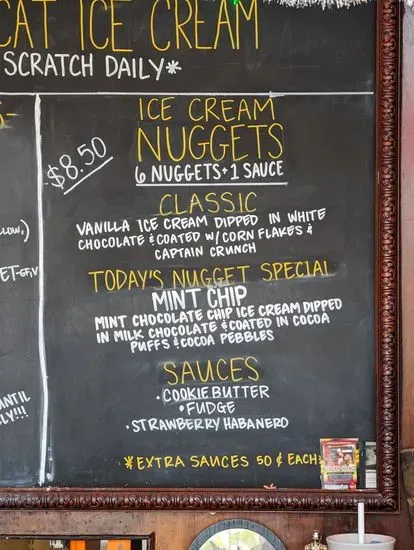 CAT ICE CREAM
SCRATCH DAILY*
$8.50
ICE CREAM
NUGGETS
6 NUGGETS + 1 SAUCE
CLASSIC
VANILLA ICE CREAM DIPPED IN WHITE
CHOCOLATE & COATED W/ CORN FLAKES &
CAPTAIN CRUNCH
TODAY'S NUGGET SPECIAL
MINT CHIP
MINT CHOCOLATE CHIP ICE CREAM DIPPED
IN MILK CHOCOLATE & COATED IN COCOA
PUFFS & COCOA PEBBLES
SAUCES
• COOKIE BUTTER
• FUDGE
• STRAWBERRY HABANERO
*EXTRA SAUCES 50 ¢ EACH